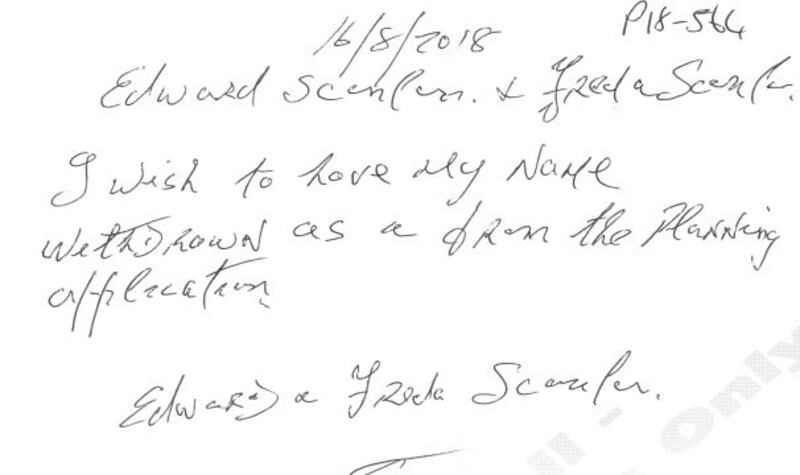 16/8/2018 P18-564
Edward Scanlan. & Freda Scanlan.
I wish to have My Name
withDrawn as a from the Planning
application.
Edward & Freda Scanlan.
ll - 
Only